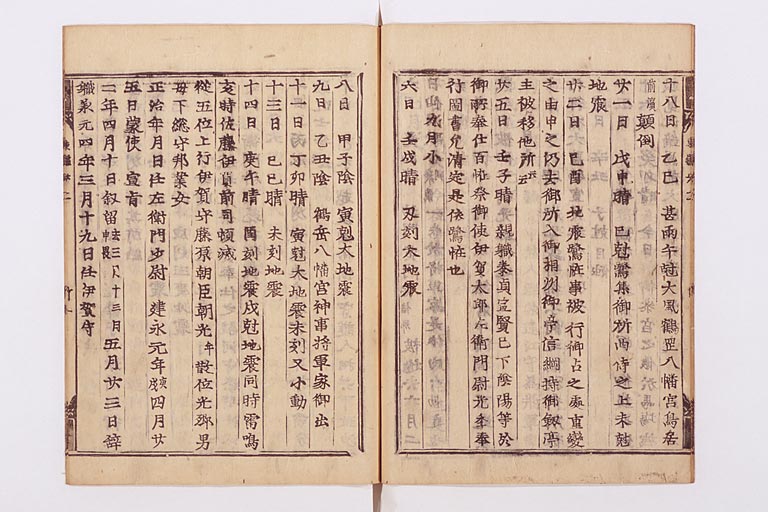 十八日 乙巳 甚雨午尅大風鶴岳八幡宮鳥居
前濱顛倒
廿一日 戊申晴 巳尅鷺集御所西侍之上未尅
地震
廿二日 己酉 地震鷺恠事被行御占之處重變
之由申之仍去御所入御相州御亭信綱持御釼亭
主被移他所云云
廿五日 壬子晴 親職泰貞宣賢已下陰陽等於
御所奉仕百恠祭御使伊賀太郎左衛門尉光季奉
行圖書允清定是依鷺恠也
九月小
六日 壬戌晴 丑刻大地震
八日 甲子陰 寅尅大地震
九日 乙丑陰 鶴岳八幡宮神事将軍家御出
十一日 丁卯晴 寅尅大地震未刻又小動
十三日 己巳晴 未刻地震
十四日 庚午晴 酉刻地震戌尅地震同時雷鳴
亥時佐藤伊賀前司頓滅
從五位上行伊賀守藤原朝臣朝光卒 散位光郷男
母下総守邦業女
正治年月日任左衛門少尉 建永元年 四月廿
五日蒙使宣旨
二年四月十日叙留 五月廿三日辞
職承元四年三月十九日任伊賀守